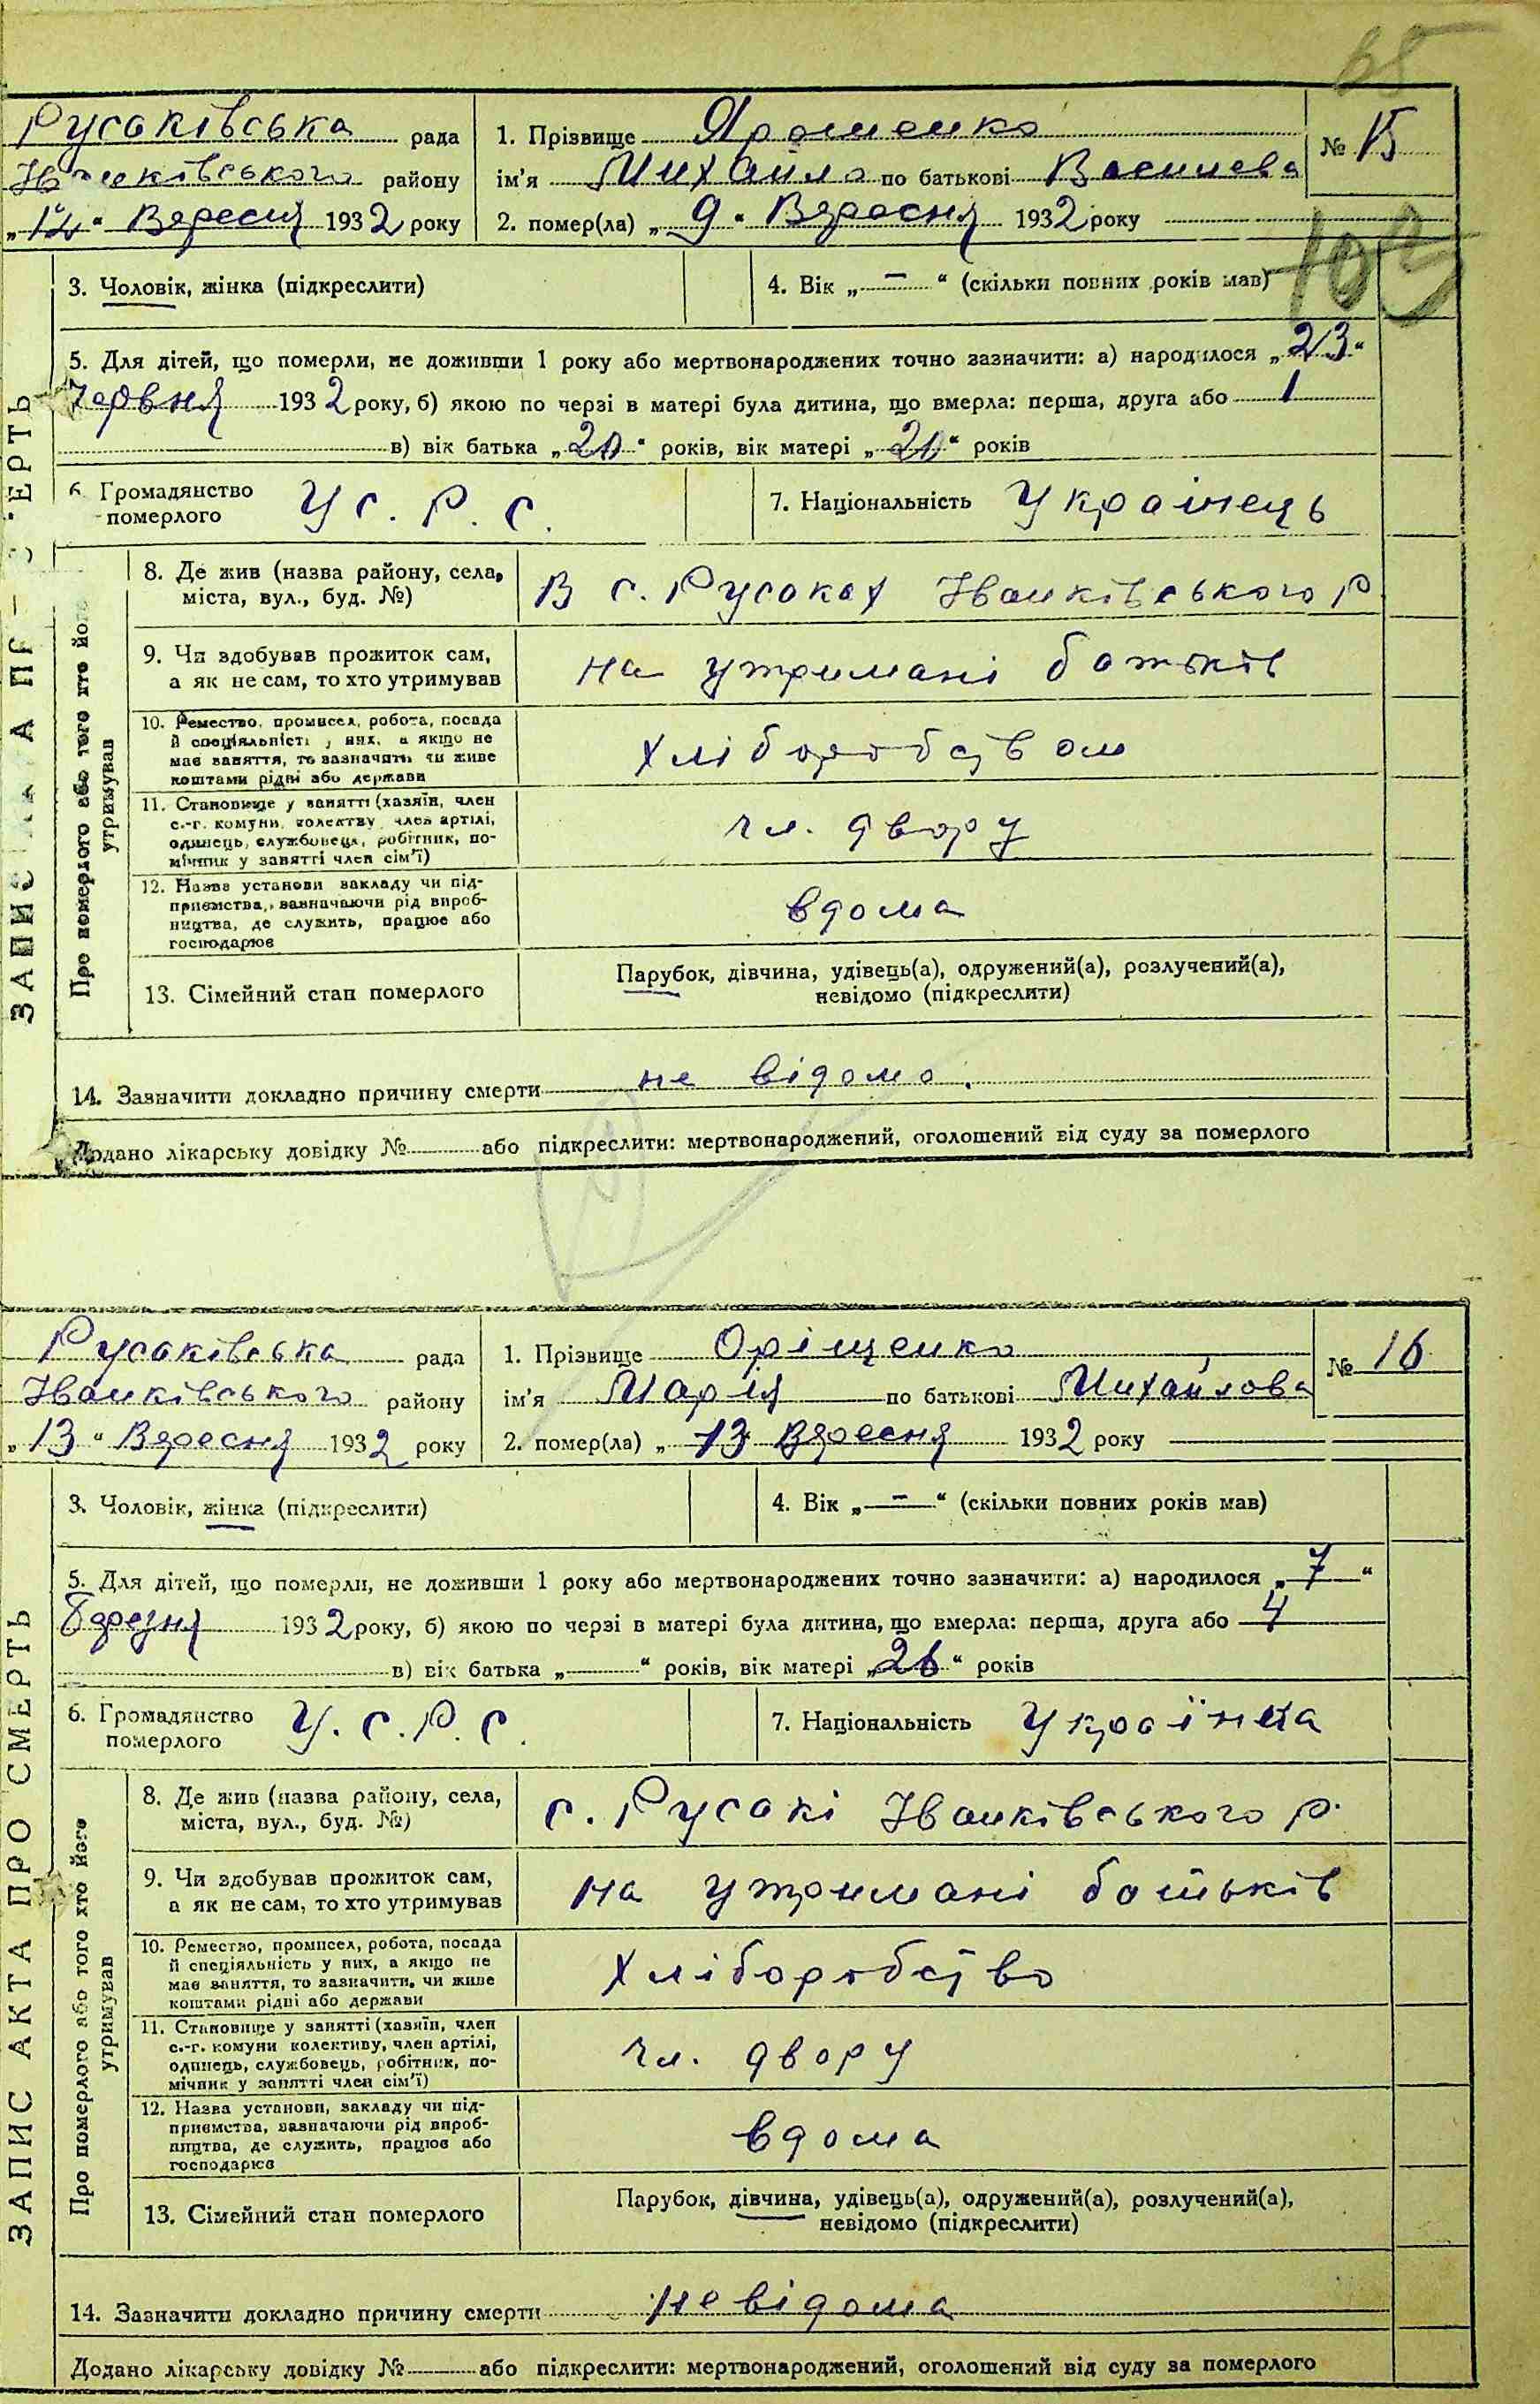 Русаківська рада
1. Прізвище Ярошенко
№ 15
Іванківського району
ім'я Михайло по батькові Васильова
„12“ Вересня 1932 року
2. помер(ла) „9“ Вересня 1932 року
103
3. Чоловік, жінка (підкреслити)
4. Вік „—“ (скільки повних років мав)
5. Для дітей, що померли, не доживши 1 року або мертвонароджених точно зазначити: а) народилося „23“
Червня 1932 року, б) якою по черзі в матері була дитина, що вмерла: перша, друга або 1
в) вік батька „20“ років, вік матері „20“ років
6. Громадянство
померлого
У С. Р. С.
7. Національність Українець
8. Де жив (назва району, села,
міста, вул., буд. №)
В с. Русаках Іванківського р
9. Чи здобував прожиток сам,
а як не сам, то хто утримував
на утримані батьків
10. Ремество, промисел, робота, посада
й спеціяльність у них, а якщо не
має заняття, то зазначить чи живе
коштами рідні або держави
Хліборобством
11. Становище у занятті (хазяїн, член
с.-г. комуни, колективу, член артілі,
одинець, службовець, робітник, по-
мічник у занятті член сім'ї)
чл. двору
12. Назва установи закладу чи під-
приємства, зазначаючи рід вироб-
ництва, де служить, працює або
господарює
вдома
13. Сімейний стан померлого
Парубок, дівчина, удівець(а), одружений(а), розлучений(а),
невідомо (підкреслити)
14. Зазначити докладно причину смерти не відомо.
Додано лікарську довідку № або підкреслити: мертвонароджений, оголошений від суду за померлого
Про померлого або того хто його
утримував
Русаківська рада
1. Прізвище Оріщенко
№ 16
Іванківського району
ім'я Марія по батькові Михайлова
„13“ Вересня 1932 року
2. помер(ла) „13 Вересня 1932 року
3. Чоловік, жінка (підкреслити)
4. Вік „—“ (скільки повних років мав)
5. Для дітей, що померли, не доживши 1 року або мертвонароджених точно зазначити: а) народилося „7“
Березня 1932 року, б) якою по черзі в матері була дитина, що вмерла: перша, друга або 4
в) вік батька „—“ років, вік матері „26“ років
6. Громадянство
померлого
У. С. Р. С.
7. Національність Українка
8. Де жив (назва району, села,
міста, вул., буд. №)
с. Русакі Іванківського р.
9. Чи здобував прожиток сам,
а як не сам, то хто утримував
на утримані батьків
10. Ремество, промисел, робота, посада
й спеціяльність у них, а якщо не
має заняття, то зазначити, чи живе
коштами рідні або держави
Хліборобство
11. Становище у занятті (хазяїн, член
с.-г. комуни колективу, член артілі,
одинець, службовець, робітник, по-
мічник у занятті член сім'ї)
чл. двору
12. Назва установи, закладу чи під-
приємства, зазначаючи рід вироб-
ництва, де служить, працює або
господарює
вдома
13. Сімейний стан померлого
Парубок, дівчина, удівець(а), одружений(а), розлучений(а),
невідомо (підкреслити)
14. Зазначити докладно причину смерти невідома
Додано лікарську довідку № або підкреслити: мертвонароджений, оголошений від суду за померлого
ЗАПИС АКТА ПРО СМЕРТЬ
Про померлого або того хто його
утримував